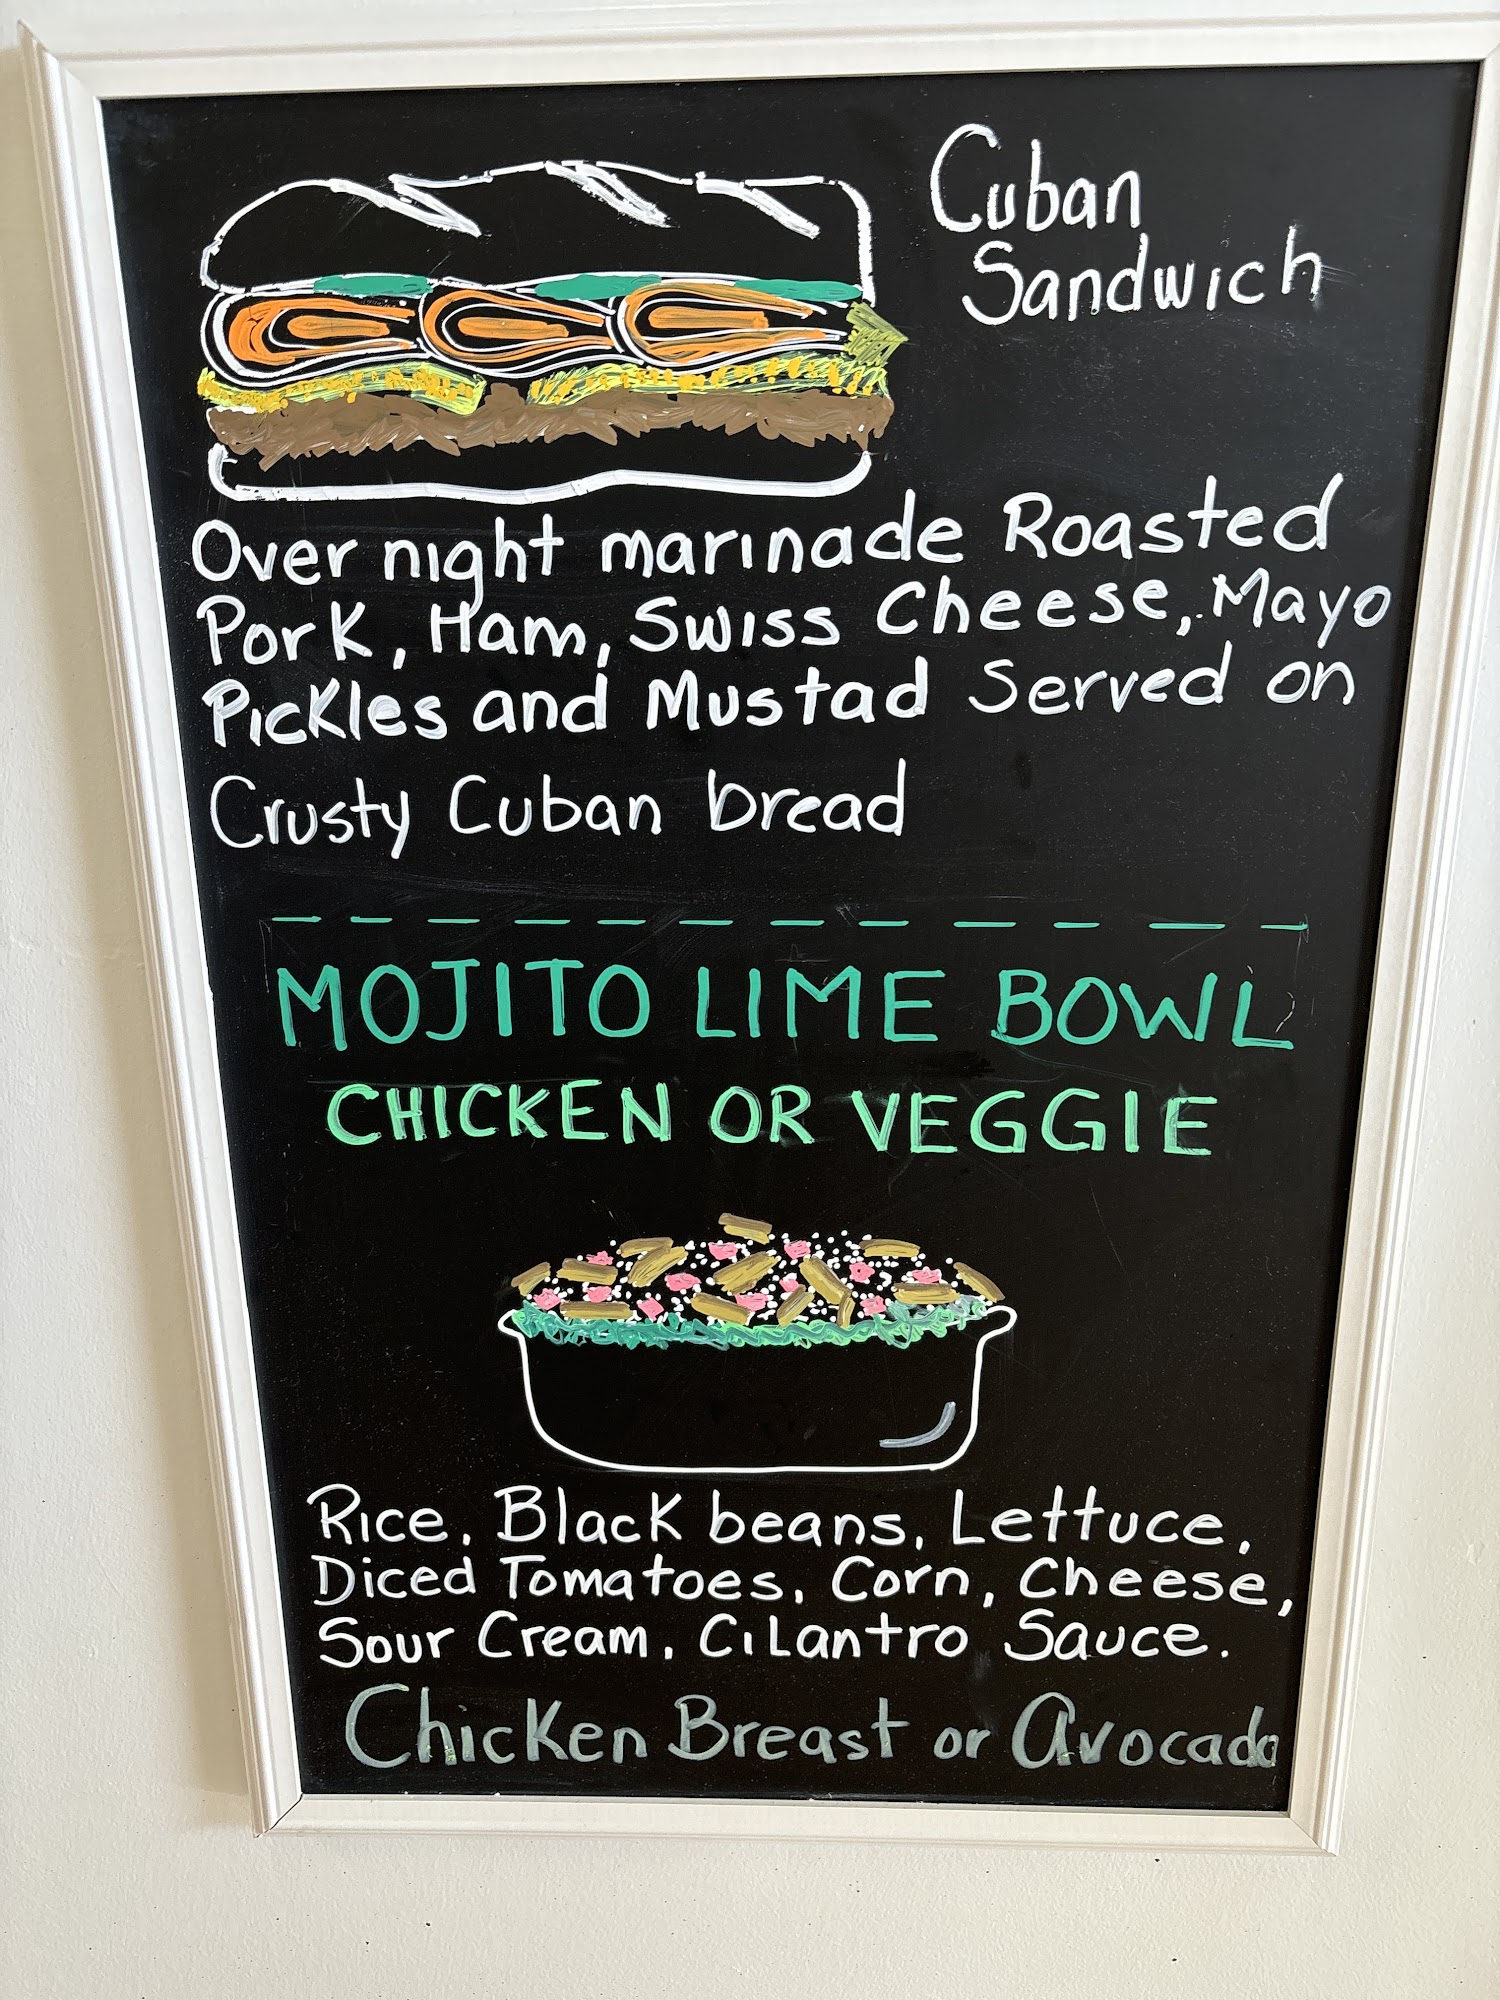 Cuban
Sandwich
Over night marinade Roasted
Pork, Ham, Swiss Cheese, Mayo
Pickles and Mustad Served on
Crusty Cuban bread
MOJITO LIME BOWL
CHICKEN OR VEGGIE
Rice, Black beans, Lettuce,
Diced Tomatoes, Corn, Cheese,
Sour Cream, Cilantro Sauce.
Chicken Breast or Avocado